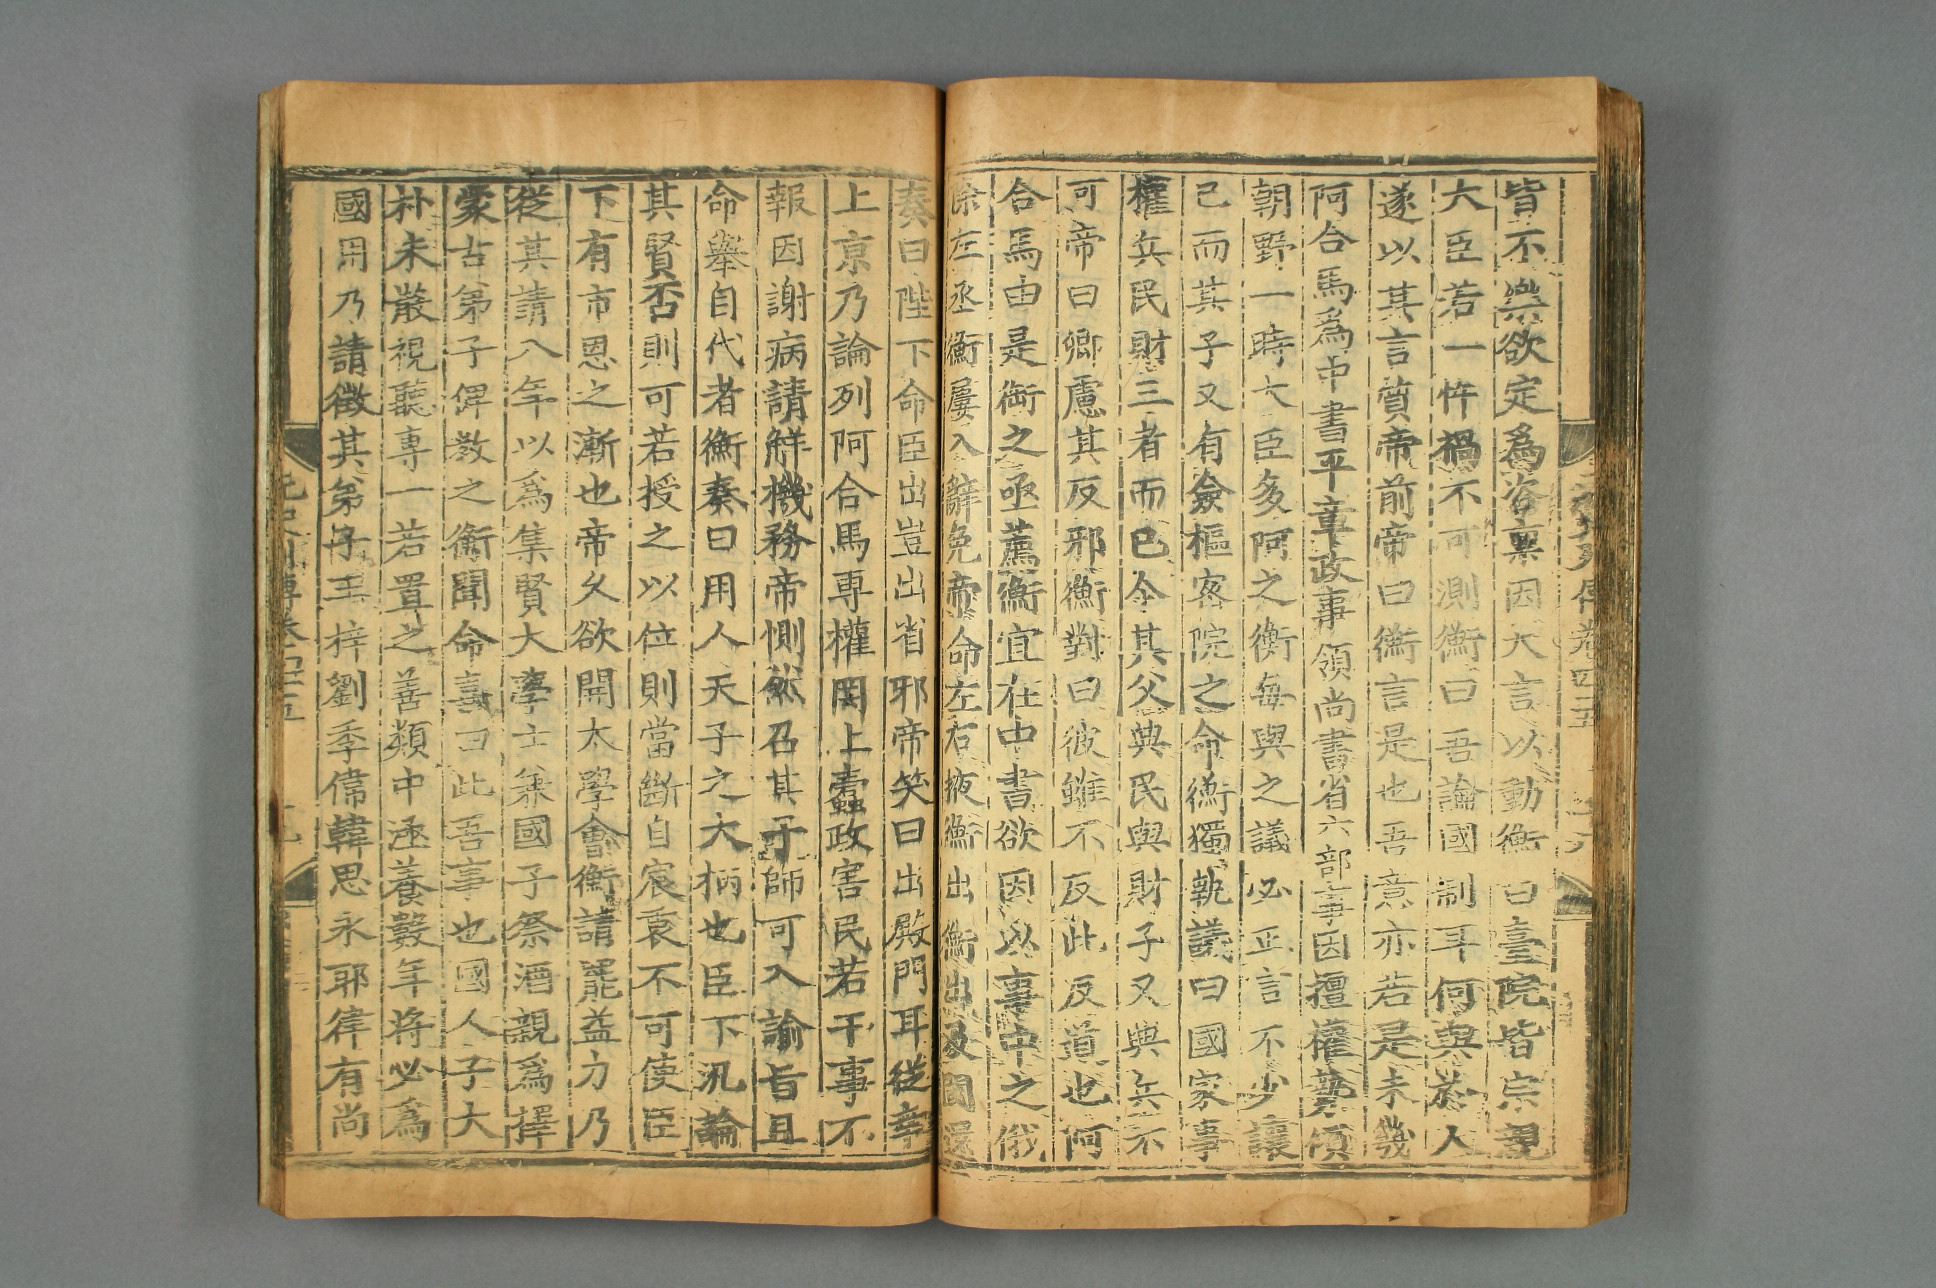 皆不樂欲定爲咨禀因大言以動衡曰臺院皆宗親
大臣若一忤禍不可測衡曰吾論國制耳何與於人
遂以其言質帝前帝曰衡言是也吾意亦若是未幾
阿合馬爲中書平章政事領尚書省六部事因擅權勢傾
朝野一時大臣多阿之衡每與之議必正言不少讓
已而其子又有僉樞密院之命衡獨執議曰國家事
權兵民財三者而已今其父典民與財子又典兵不
可帝曰卿慮其反邪衡對曰彼雖不反此反道也阿
合馬由是銜之亟薦衡宜在中書欲因以事中之俄
除左丞衡屢入辭免帝命左右掖衡出衡出及閾還
奏曰陛下命臣出豈出省邪帝笑曰出殿門耳從幸
上京乃論列阿合馬專權罔上蠹政害民若干事不
報因謝病請解機務帝惻然召其子師可入諭旨且
命舉自代者衡奏曰用人天子之大柄也臣下汎論
其賢否則可若授之以位則當斷自宸衷不可使臣
下有市恩之漸也帝久欲開太學會衡請罷益力乃
從其請八年以爲集賢大學士兼國子祭酒親爲擇
蒙古弟子俾教之衡聞命喜曰此吾事也國人子大
朴未散視聽專一若置之善類中涵養數年將必爲
國用乃請徵其弟子王梓劉季偉韓思永耶律有尚
元史列傳卷四十五
十九